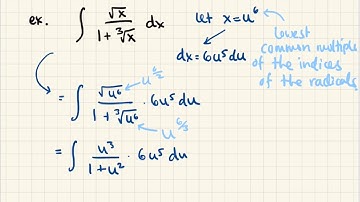 ex. ∫ √x / (1 + ∛x) dx
let x = u⁶
dx = 6u⁵ du
lowest
common multiple
of the indices
of the radicals
= ∫ √u⁶ / (1 + ∛u⁶) · 6u⁵ du
u^(6/2)
u^(6/3)
= ∫ u³ / (1 + u²) · 6u⁵ du